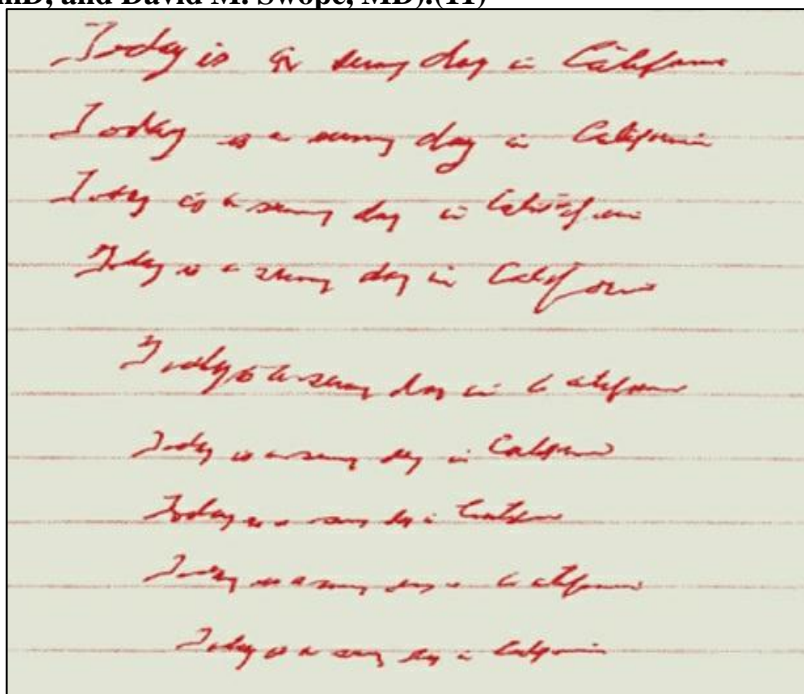 mD, and David M. Swope, MD).(11)
Today is a sunny day in California
Today is a sunny day in California
Today is a sunny day in California
Today is a sunny day in California
Today is a sunny day in California
Today is a sunny day in California
Today is a sunny day in California
Today is a sunny day in California
Today is a sunny day in California